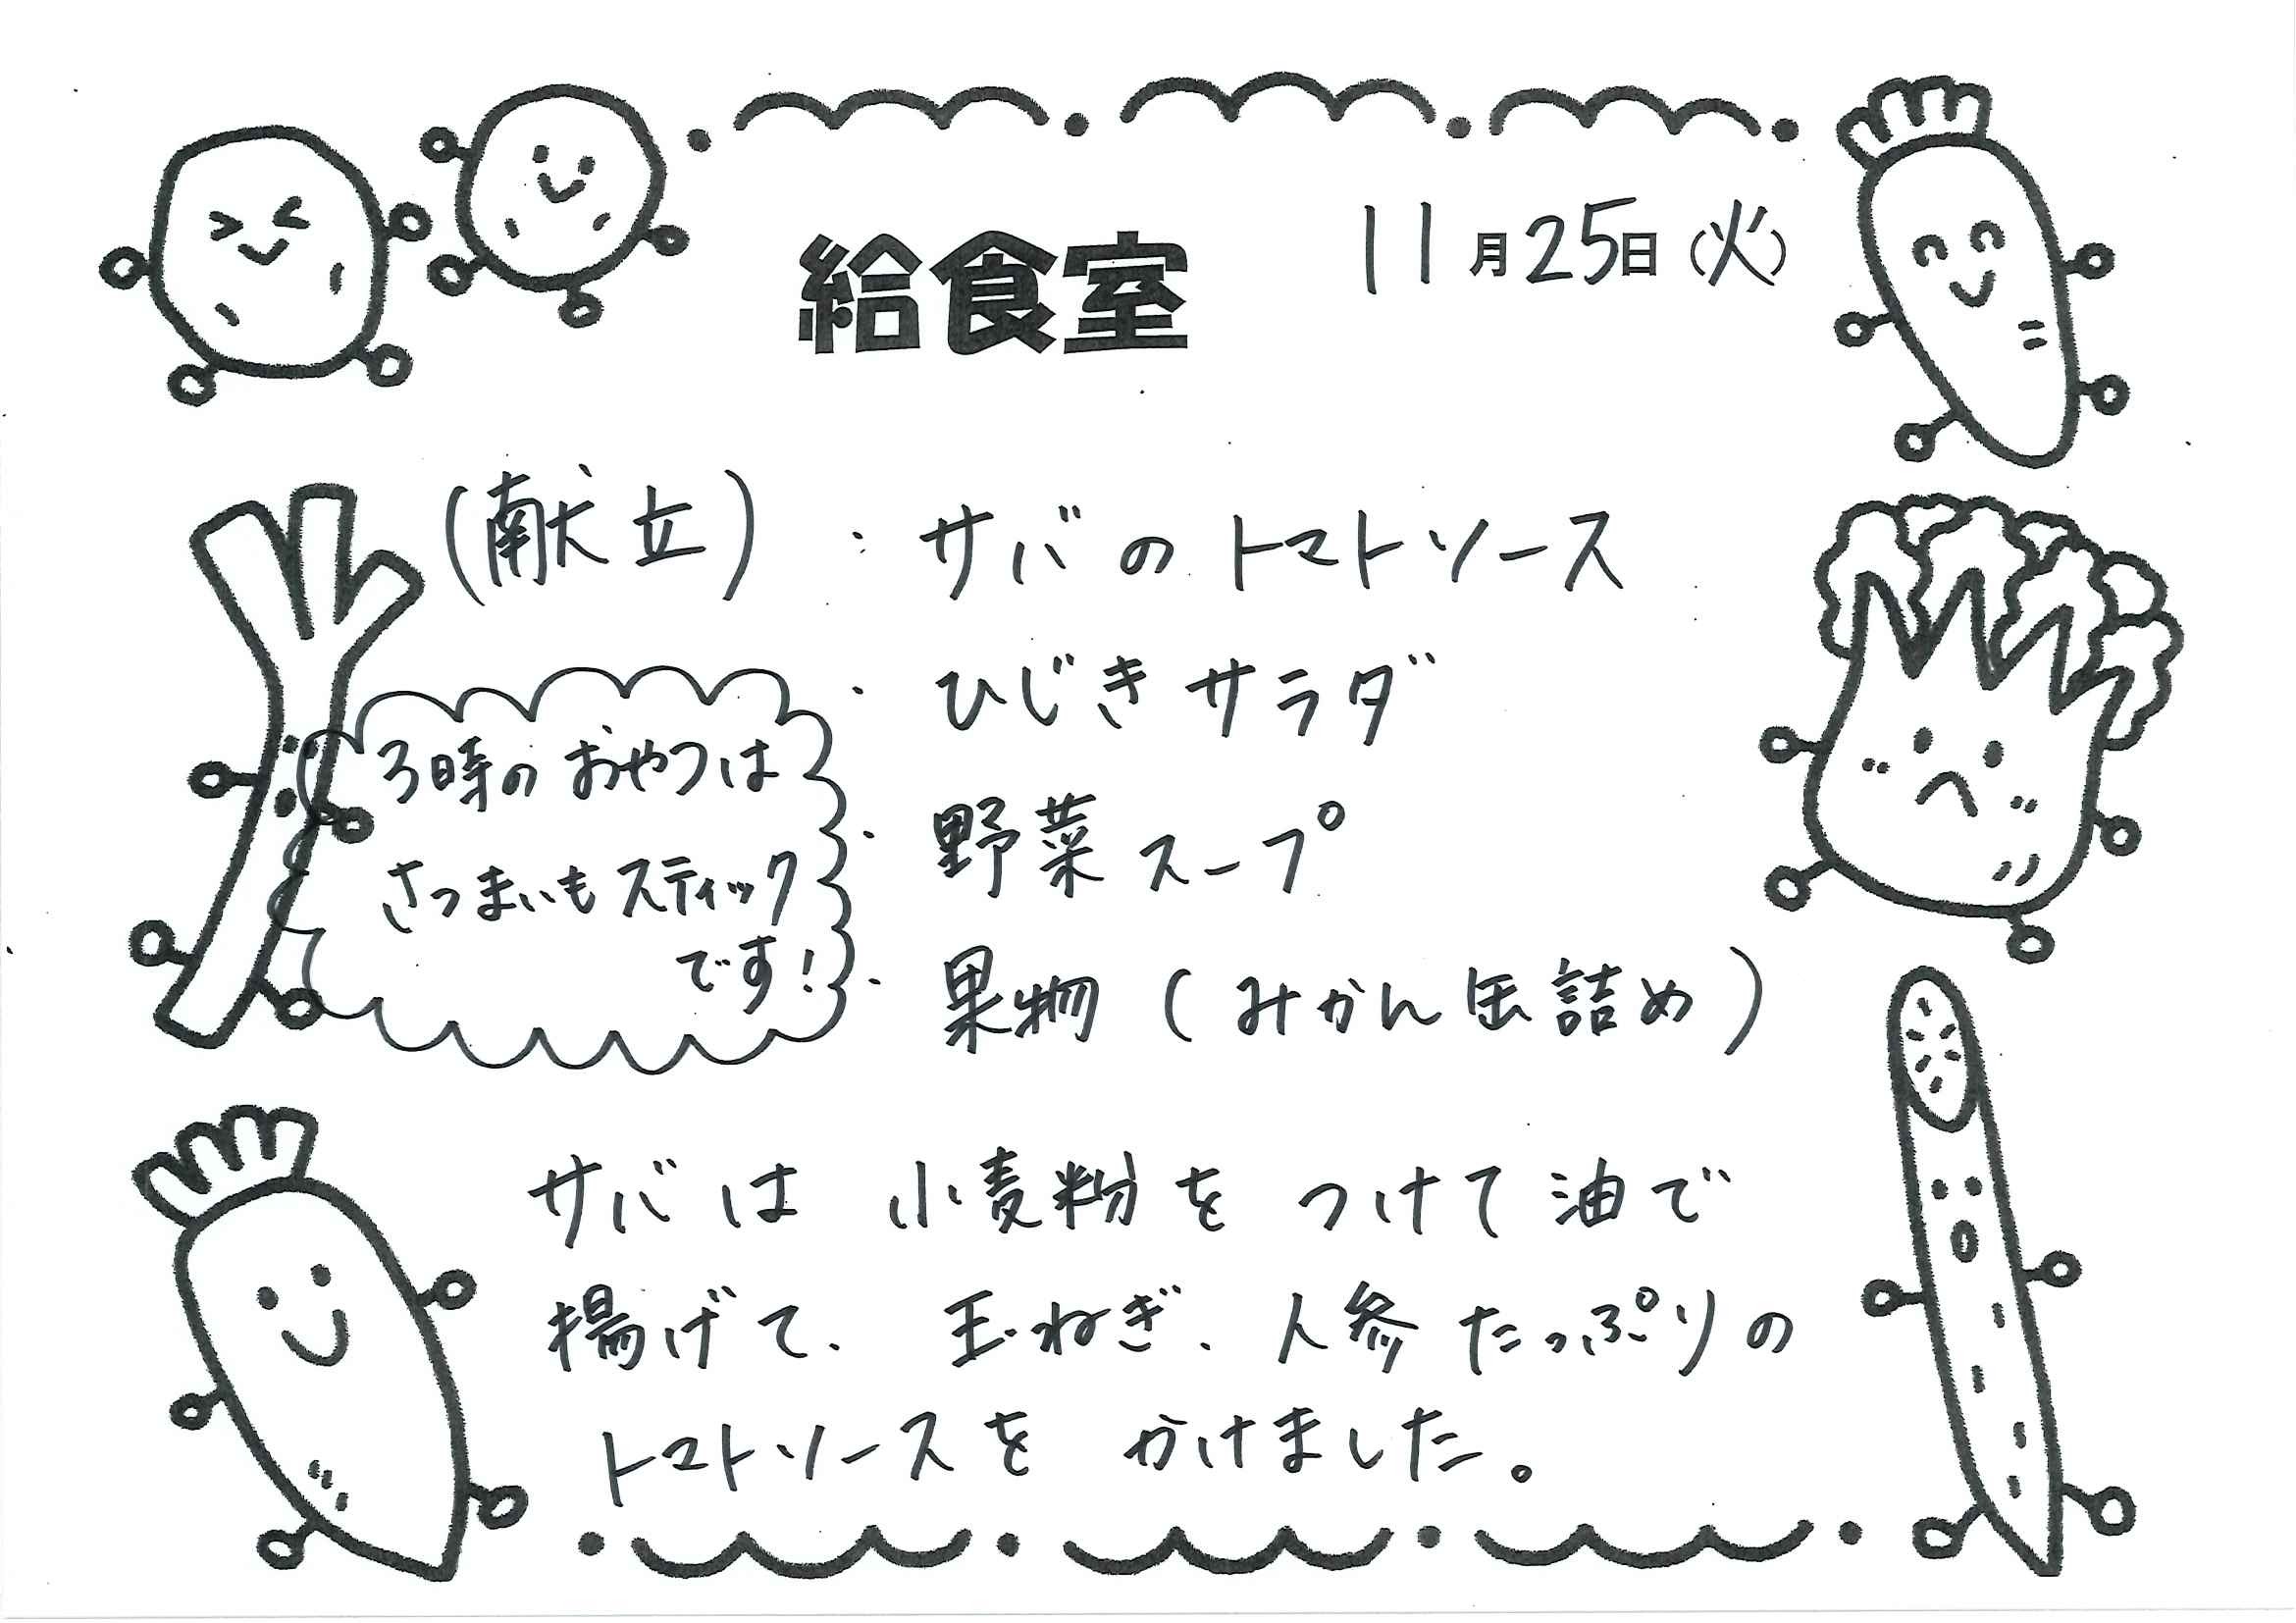 給食室
11月25日(火)
(献立)
・サバのトマトソース
・ひじきサラダ
・野菜スープ
・果物(みかん缶詰め)
3時のおやつは
さつまいもスティック
です!
サバは小麦粉をつけて油で
揚げて、玉ねぎ、人参たっぷりの
トマトソースをかけました。